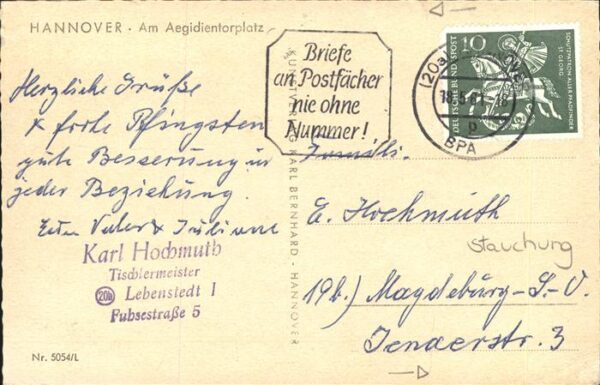 HANNOVER · Am Aegidientorplatz
Herzliche Grüße
& frohe Pfingsten
gute Besserung in
jeder Beziehung.
Euer Vater & Juliane
Karl Hochmuth
Tischlermeister
20b Lebenstedt I
Fuhsestraße 5
Nr. 5054/L
KUNSTVERLAG KARL BERNHARD · HANNOVER
Briefe
an Postfächer
nie ohne
Nummer!
(20a) HANNOVER
18.5.61.-18
p
BPA
10
DEUTSCHE BUNDESPOST
SCHUTZPATRON ALLER PFADFINDER
ST. GEORG
Familie.
E. Hochmuth
Stauchung
19b.) Magdeburg-S.-O.
3